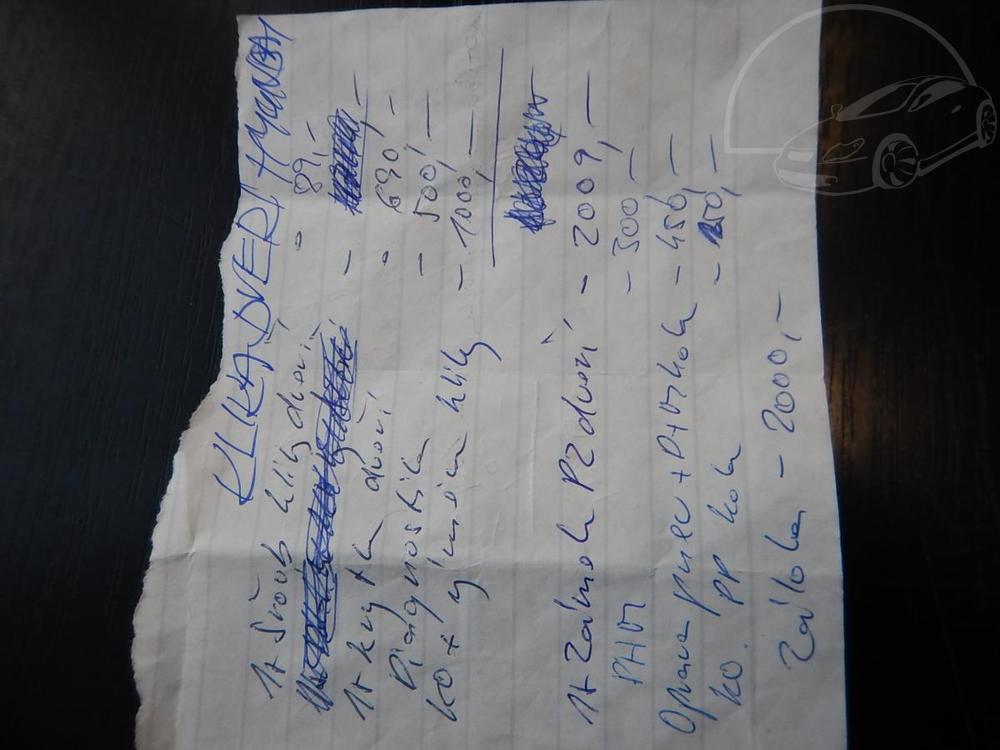 KLIKA DVERÍ HYUNDAI
1x Šroub kliky dveří - 89,-
1x krytka dveří - 690,-
Diagnostika - 500,-
KO + výměna kliky - 1000,-
1x Zámek PZ dveří - 2009,-
PHM - 300,-
Oprava pneu + D+M kola - 450,-
ko. PP kola
Záloha - 2000,-